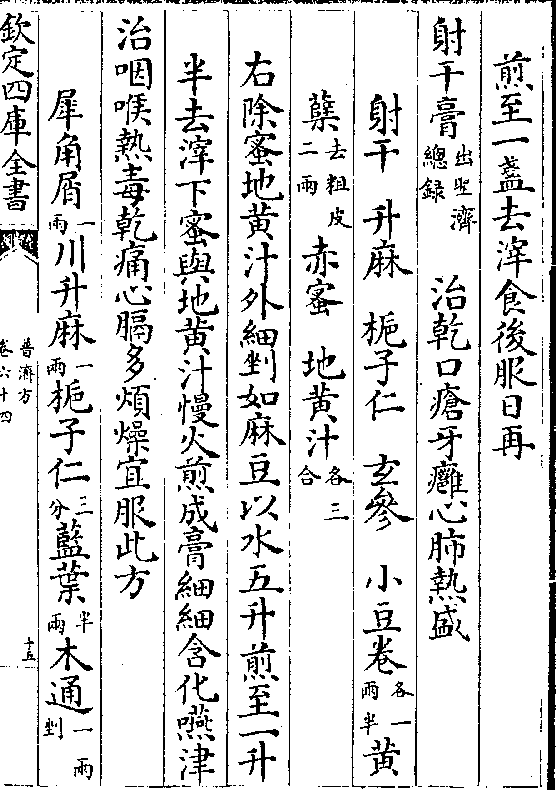 煎至一盞去滓食後服日再
射干膏出聖濟總録　治乾口瘡牙癰心肺熱盛
射干　升麻　梔子仁　玄參　小豆卷各一兩半　黄
蘗去粗皮二兩　赤蜜　地黄汁各三合
右除蜜地黄汁外細剉如麻豆以水五升煎至一升
半去滓下蜜與地黄汁慢火煎成膏細細含化嚥津
治咽喉熱毒乾痛心膈多煩燥宜服此方
犀角屑一兩　川升麻一兩　梔子仁三分　藍葉半兩　木通一兩剉
欽定四庫全書
普濟方
卷六十四
十五